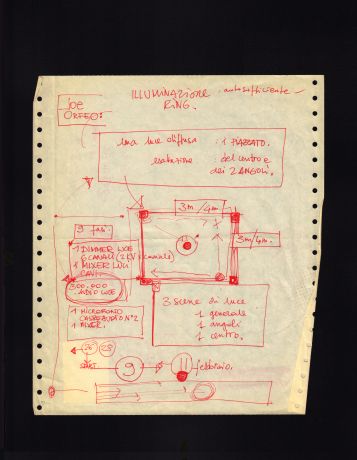 Joe
ORFEO:
ILLUMINAZIONE autosufficiente
RING.
una luce diffusa : 1 PIAZZATO.
: del centro e
dei 2 ANGOLI.
3m/4m
11
3m/4m.
9 fasi.
1 DIMMER LUCE
6 CANALI (2KV x canale)
1 MIXER LUCI
CAVI
300.000
AUDIO LUCE
1 MICROFONO
N°2
1 MIXER.
3 scene di luce
1 generale
1 angoli
1 centro.
26 28
START
9
11
febbraio.